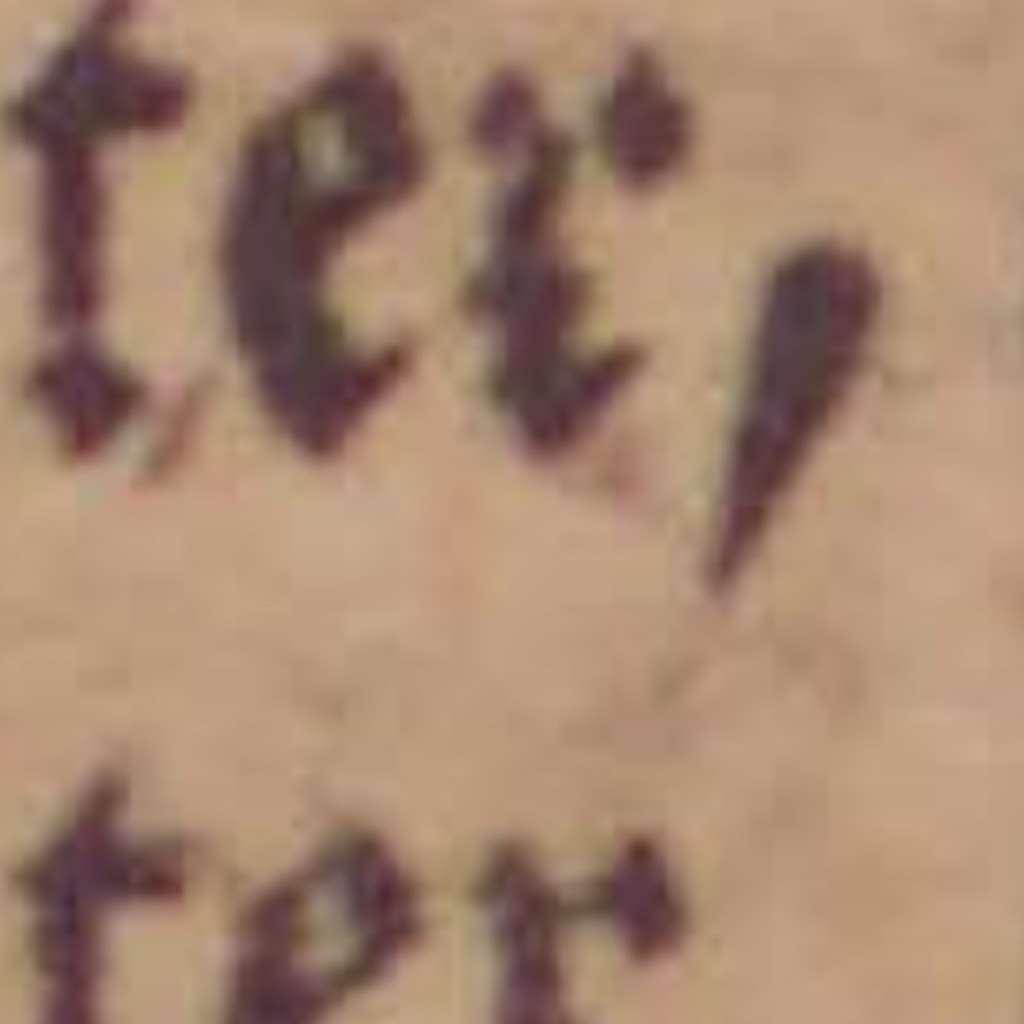 ter,
ter